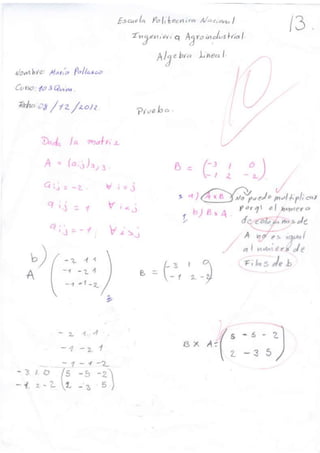 Escuela Politecnica Nacional
Ingenieria Agroindustrial
Algebra Lineal
13.
10
Nombre: Mario Pallasco
Curso: 103 Quim.
Fecha: 08/12/2012
Prueba.
Dada la matriz
A = (aij)3,3
aij = -2 ∀ i=j
aij = 1 ∀ i<j
aij = -1 ∀ i>j
B = (-3 1 0
-1 2 -2)
a) A×B No puede multiplicar
porq' el numero
de columnas de
A no es igual
al numero de
Filas de b.
b) B×A
b)
A (-2 1 1
-1 -2 1
-1 -1 -2)
B = (-3 1 0
-1 2 -2)
-2 1 1
-1 -2 1
-1 -1 -2
-3 1 0 (5 -5 -2)
-1 2 -2 (2 -3 5)
B × A = (5 -5 -2
2 -3 5)